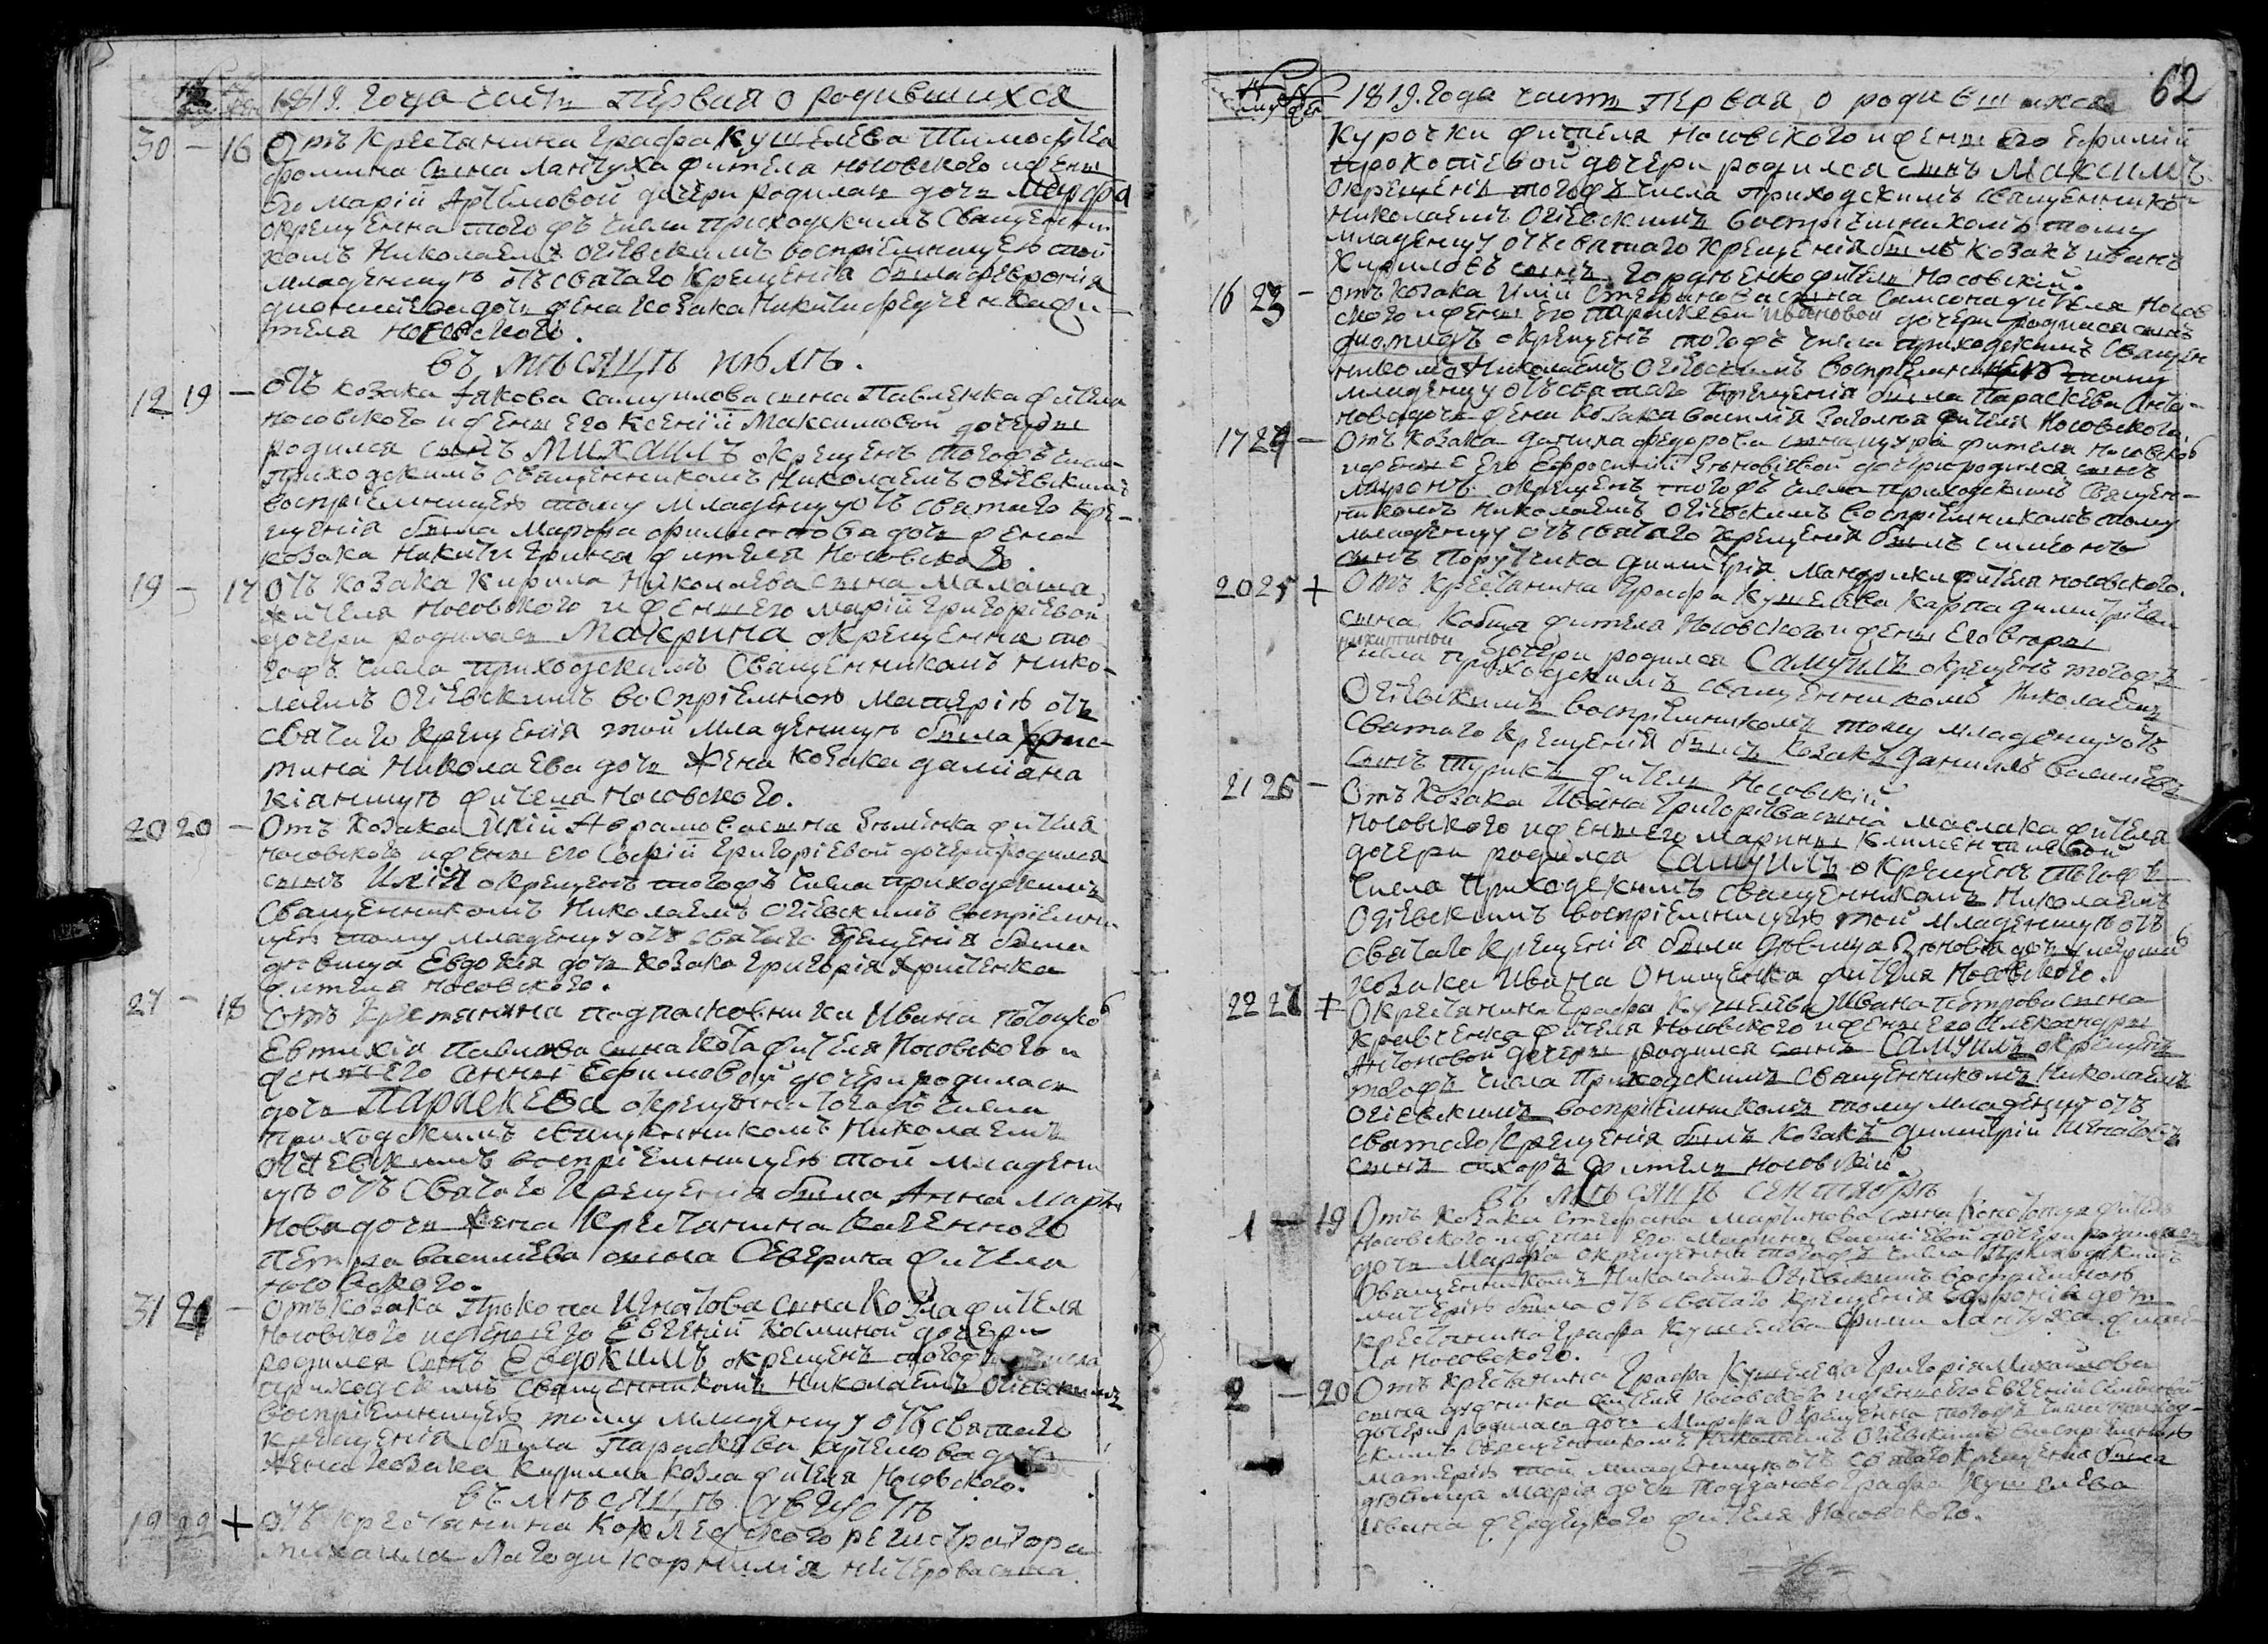 1819. года часть первая о родившихся
30 – 16 Отъ Крестянина Графа Кушелева Тимофея
Фомина сына Лантуха жителя носовского и жены
его Марiи Артемовой дочери родилась дочь Марфа
окрещенна тогожъ числа приходскимъ Священни
комъ Николаемъ Огiевскимъ воспрiемницею той
младеницѣ отъ святаго крещенiя была Феврония
дочь жена козака Никити Федченка жи
теля носовского.
въ мѣсяцѣ июлѣ.
12 19 – отъ козака Iякова Самуилова сына Павленка жителя
носовского и жены его Ксенiи Максимовой дочери
родился сынъ Михаилъ окрещенъ тогожъ числа
приходскимъ священникомъ Николаемъ огiевскимъ
воспрiемницею тому младенцу отъ святаго кре-
щенiя была Марфа дочь жена
козака Никити жителя Носовского.
19 – 17 отъ козака Кирила Николаева сына Мамаша
жителя Носовского и жены его Марiи Григорiевой
дочери родилась Макрина окрещенна то
гожъ числа приходскимъ Священникомъ Нико-
лаемъ Огiевскимъ воспрiемною матерiю отъ
святаго крещенiя той младеницѣ была Хрис-
тина Николаева дочь жена козака дамiана
Кiяницѣ жителя Носовского.
20 20 – Отъ козака Илiи Аврамова сына жителя
носовского и жены его Софiи Григорiевой дочери родился
сынъ Илiя окрещенъ тогожъ числа приходскимъ
Священникомъ Николаемъ огiевскимъ воспрiемни
цею тому младенцу отъ святаго крещенiя была
дѣвица Евдокiя дочь козака Григорiя Хрищенка
жителя носовского.
27 – 18 Отъ крестянина подполковника Ивана Почеко
Евтихiя Павлова сына Кота жителя Носовского и
жены его анны Ефимовой дочери родилась
дочь Параскева окрещенна тогожъ числа
приходскимъ священникомъ Николаемъ
огiевскимъ воспрiемницею той младени
цѣ отъ Святаго Крещенiя была Анна Марти
нова дочь жена Крестянина казенного
Петра василiева сына Северина жителя
носовского.
31 21 – отъ козака Прокопа Игнатова сына Козла жителя
носовского и жены его Евгенiи Косминой дочери
родился сынъ Евдокимъ окрещенъ тогожъ числа
приходскимъ священникомъ Николаемъ огiевскимъ
воспрiемницею тому младенцу отъ святаго
крещенiя была Параскева артемова дочь
жена козака Кирилла козла жителя Носовского.
въ мѣсяцѣ августѣ
12 22 + отъ крестянина Колежского регистратора
михаила Лагоди Корнилiя сына
62
1819. года часть первая о родившихся
Курочки жителя носовского и жены его Ефимiи
прокопiевой дочери родился сынъ Максимъ
окрещенъ тогожъ числа приходскимъ священнико
Николаемъ Огiевскимъ воспрiемникомъ тому
младенцу отъ святаго крещенiя былъ козакъ иванъ
Кириловъ сынъ Гордѣенко житель Носовскiй.
16 23 – отъ козака Илiи Стефанова сына Самсона жителя Носов
ского и жены его Параскевы ивановой дочери родился сынъ
диомидъ окрещенъ тогожъ числа приходскимъ Священ
никомъ Николаемъ Огiевскимъ воспрiемницею тому
младенцу отъ святаго крещенiя была Параскева Анто-
нова дочь жена козака василiя жителя Носовского.
17 24 – Отъ козака данила федорова сына щура жителя носовско
и жены его Ефросинiи Зѣновiевой дочери родился сынъ
миронъ окрещенъ тогожъ числа приходскимъ Священ-
никомъ Николаемъ огiевскимъ воспрiемникомъ тому
младенцу отъ святаго крещенiя былъ симеонъ
сынъ Порутчика димитрiя Мандрики жителя носовского.
20 25 + Отъ крестянина Графа Кушелева Карпа димитрiева
сына Кобца жителя Носовского и жены его варвары
никитиной дочери родился Самуилъ окрещенъ тогожъ
числа приходскимъ священникомъ Николаемъ
Огiевскимъ воспрiемникомъ тому младенцу отъ
святаго крещенiя былъ козакъ данiилъ василiевъ
сынъ Турикъ житель Носовскiй.
21 26 – Отъ козака Ивана Григорiева сына маслака жителя
носовского и жены его марины Климентиевой
дочери родился Самуилъ окрещенъ тогожъ
числа приходскимъ священникомъ Николаемъ
Огiевскимъ воспрiемницею той младеницѣ отъ
святаго крещенiя была дѣвица Зѣновiя дочь умершаго
козака Ивана Онищенка жителя Носовского.
22 27 + О Крестянина Графа Кушелева Ивана петрова сына
Кравченка жителя Носовского и жены его Александры
Антоновой дочери родился сынъ Самуилъ окрещенъ
тогожъ числа Приходскимъ священникомъ Николаемъ
огiевскимъ воспрiемникомъ тому младенцу отъ
святаго крещенiя былъ козакъ димитрiй Игнатовъ
сынъ тхоръ житель носовскiй.
въ мѣсяцѣ сентябрѣ
1 – 19 Отъ козака стефана Мартинова сына Конотопця жителя
носовского и жены его Марины василiевой дочери родилась
дочь Марфа окрещенна тогожъ числа Приходскимъ
Священникомъ Николаемъ Огiевскимъ воспрiемною
матерiю была отъ святаго крещенiя дочь
крестянина Графа Кушелева Фомы Лантуха жите
ля носовского.
2 – 20 Отъ крестянина Графа Кушелева Григорiя Михайлова
сына дудника жителя Носовского и жены его Евгенiи Семеновой
дочери родилась дочь Марфа Окрещенна тогожъ числа приход-
скимъ священникомъ Николаемъ Огiевскимъ воспрiемною
матерiю той младеницѣ отъ святаго крещенiя была
дѣвица Марiя дочь Подданого Графа Кушелева
ивана жителя Носовского.